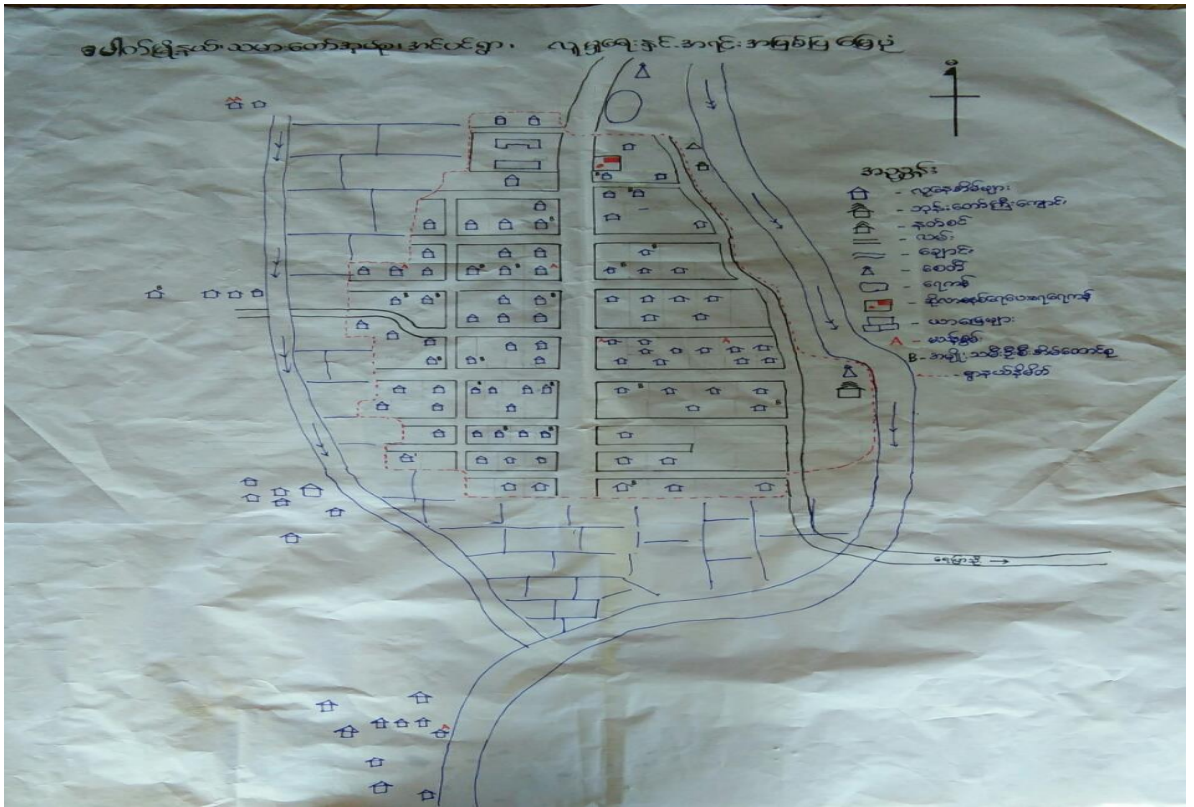 ပေါက်မြို့နယ်၊ သမားတော်အုပ်စု၊ အင်ပင်ရွာ၊ လူမှုရေးနှင့် အရင်းအမြစ်ပြ မြေပုံ
အညွှန်း
- လူနေအိမ်များ
- ဘုန်းတော်ကြီးကျောင်း
- နတ်စင်
- လမ်း
- ချောင်း
- စေတီ
- ရေကန်
- ယာမြေများ
A - မသန်စွမ်း
B - အမျိုးသမီးဦးစီးအိမ်ထောင်စု
- ရွာနယ်နိမိတ်